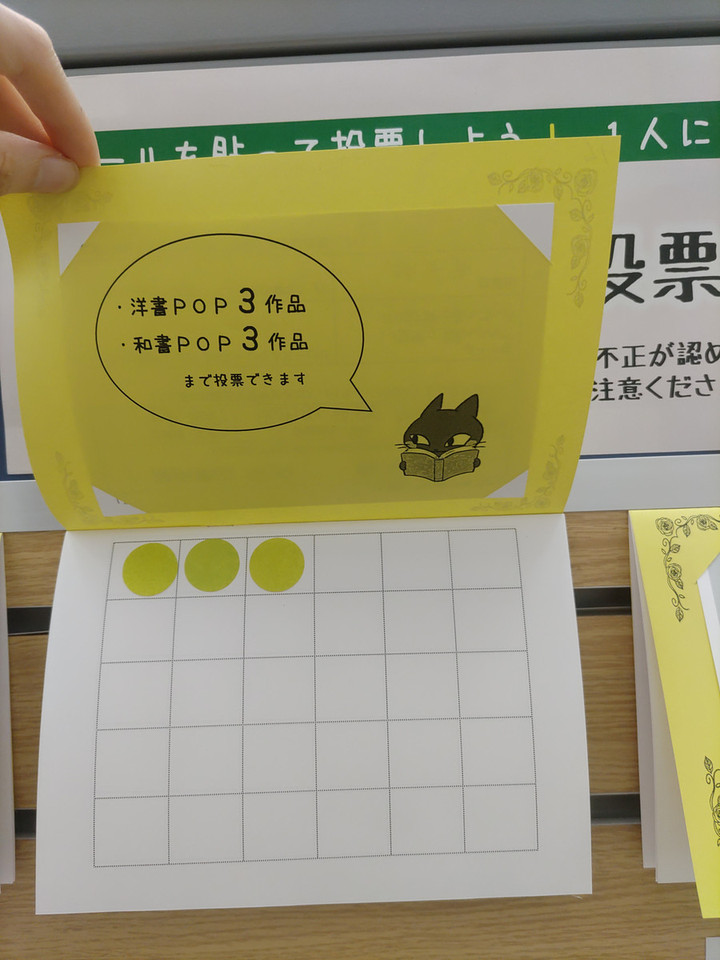 ールを貼って投票しよう! 1人に
投票
不正が認め
注意くださ
・洋書POP3作品
・和書POP3作品
まで投票できます